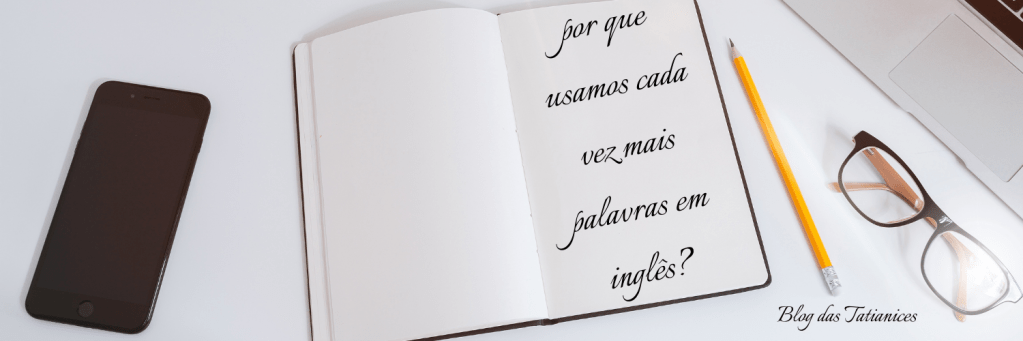 por que
usamos cada
vez mais
palavras em
inglês?
Blog das Tatianices